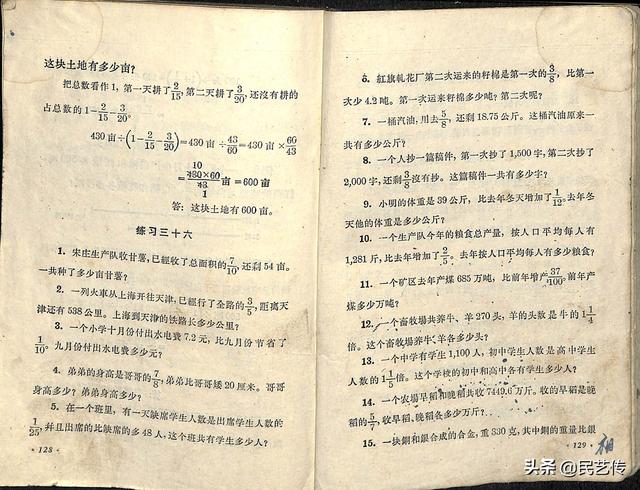 这块土地有多少亩？
把总数看作1，第一天耕了2/15，第二天耕了3/20，还没有耕的
占总数的1-2/15-3/20。
430亩÷(1-2/15-3/20)=430亩÷43/60=430亩×60/43
=430×60/43亩=600亩
10
1
答：这块土地有600亩。
练习三十六
1. 宋庄生产队收甘薯，已经收了总面积的7/10，还剩54亩。
一共种了多少亩甘薯？
2. 一列火車从上海开往天津，已經行了全路的3/5，距离天
津还有538公里。上海到天津的铁路长多少公里？
3. 一个小学十月份付出水电费7.2元，比九月份节省了
1/10。九月份付出水电费多少元？
4. 弟弟的身高是哥哥的7/8，弟弟比哥哥矮20厘米。哥哥
身高多少？弟弟身高多少？
5. 在一个班里，有一天缺席学生人数是出席学生人数的
1/25，并且出席的比缺席的多48人，这个班共有学生多少人？
·128·
6. 紅旗軋花厂第二次运来的籽棉是第一次的3/8，比第一
次少4.2吨。第一次运来籽棉多少吨？第二次呢？
7. 一桶汽油，用去5/8，还剩18.75公斤。这桶汽油原来一
共有多少公斤？
8. 一个人抄一篇稿件，第一次抄了1,500字，第二次抄了
2,000字，还剩3/8没有抄。这篇稿件一共有多少字？
9. 小明的体重是39公斤，比去年冬天增加了1/12。去年冬
天他的体重是多少公斤？
10. 一个生产队今年的粮食总产量，按人口平均每人有
1,281斤，比去年增加了2/5。去年按人口平均每人有多少粮食？
11. 一个矿区去年产煤685万吨，比前年增产37/100。前年产
煤多少万吨？
12. 一个畜牧場共养牛、羊270头，羊的头数是牛的1 1/4
倍。这个畜牧場养牛、羊各多少头？
13. 一个中学有学生1,100人，初中学生人数是高中学生
人数的1 1/5倍。这个学校的初中和高中各有学生多少人？
14. 一个农場早稻和晚稻共收7449.6万斤。收的早稻是晚
稻的5/7，收早稻、晚稻各多少万斤？
15. 一块銅和銀合成的合金，重330克，其中銅的重量比銀
·129·
头条 @民艺传